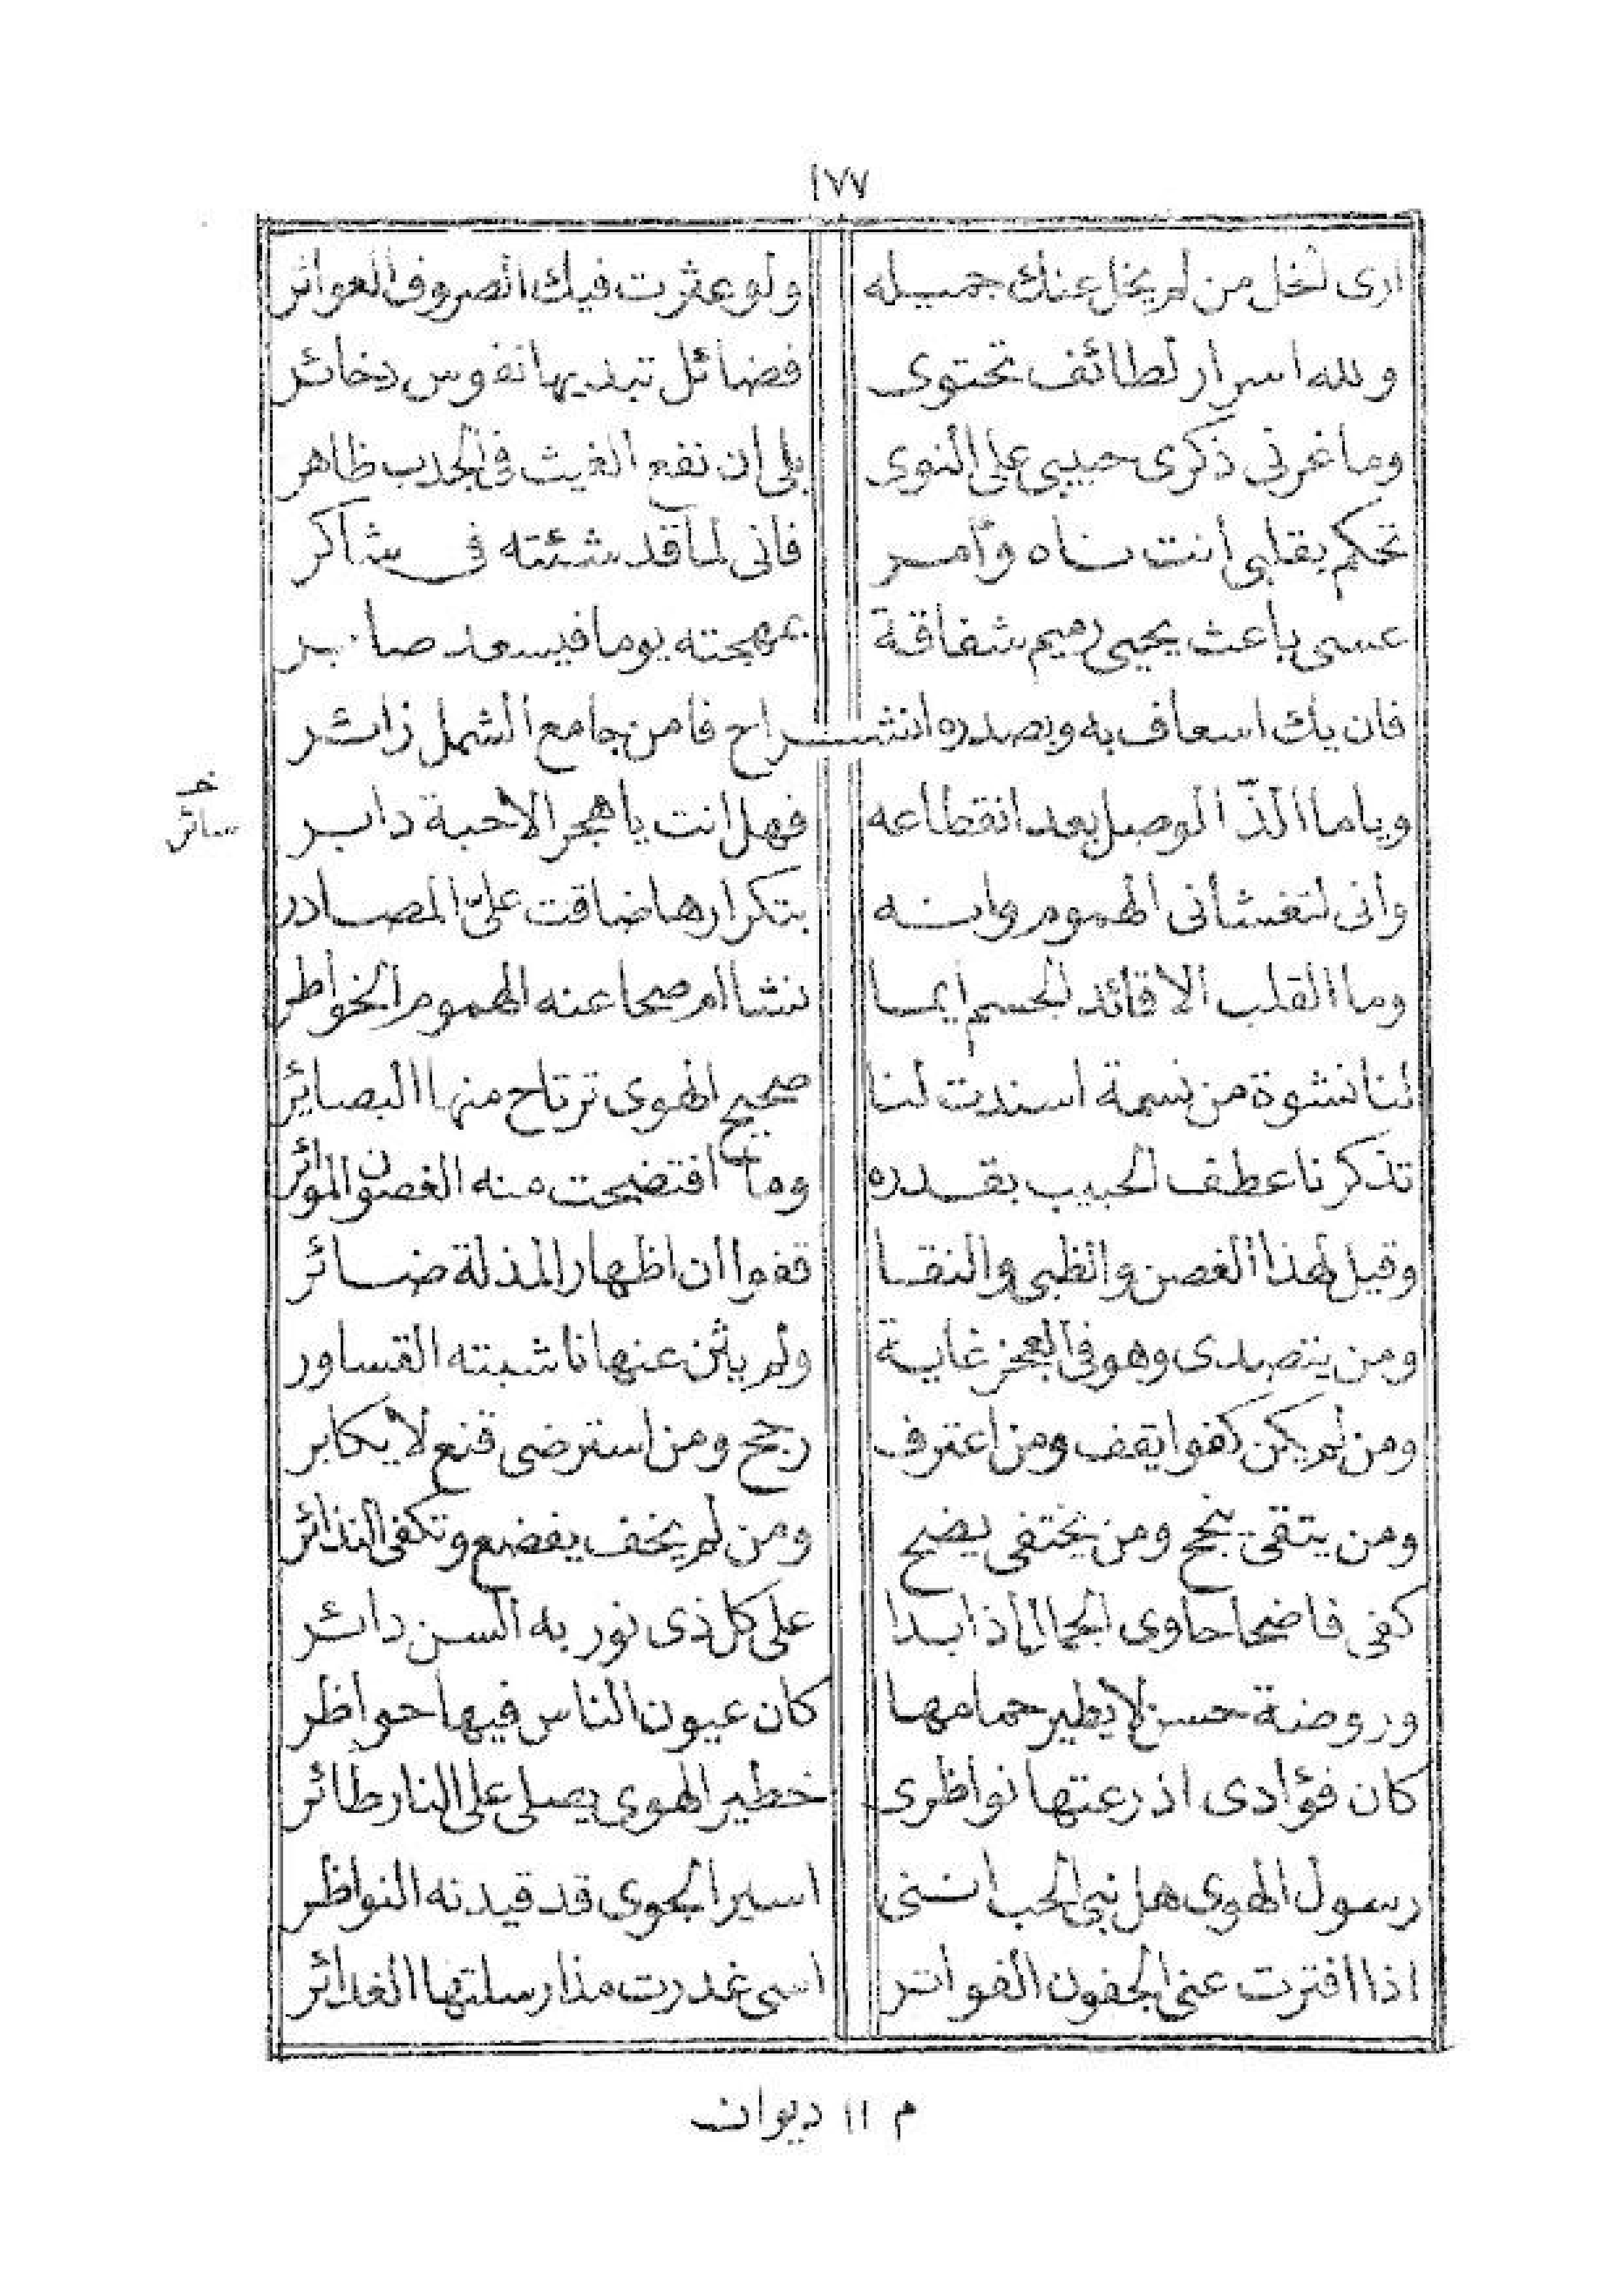 ١٧٧
ارى الخل من لم يخل عنك جميله ولو عثرت فيك الصروف العواثر
ولله اسرار لطائف تحتوى فضائل تبديها نفوس ذخائر
وما غرنى ذكرى حبيبى على النوى بلى ان نفع الغيث فى الجدب ظاهر
تحكم بقلبى انت ناه وآمر فانى لما قد شئته فى شاكر
عسى باعث يحيى رميم شفاقة بمهجته يوما فيسعد صابر
فان يك اسعاف به وبصدره انشراح فا من جامع الشمل زائر
وياما الذّ الوصل بعد انقطاعه فهل انت يا هجر الاحبة دابر
خـ
سائر
وانى لتغشانى الهموم وانه بتكرارها ضاقت علىّ المصادر
وما القلب الا قائد الجسم ايما نشا ام صحا عنه الهموم الخواطر
لنا نشوة من نسمة اسندت لنا صحيح الهوى ترتاح منها البصاير
تذكرنا عطف الحبيب بقدره وما افتضحت منه الغصون الموائر
وقيل لهذا الغصن والظبى والنقا قفوا ان اظهار المذلة ضائر
ومن يتصدى وهو فى العجز غاية ولم يثن عنها ناشبته القساور
ومن لم يكن كفوا يقف ومن اعترف رجح ومن استرضى قنع لا يكابر
ومن يتقى ينجح ومن يختفى يضيح ومن لم يخف يفضع وتكفى النذائر
كفى فاضحا حاوى الجمال اذا بدا على كل ذى نور به السن دائر
وروضة حسن لا يطير حمامها كان عيون الناس فيها حواظر
كان فؤادى اذ رعتها نواظرى خطير الهوى يصلى على النار طائر
رسول الهوى هل نبى الحب اننى اسير الجوى قد قيدته النواظر
اذا افترت عنى الجفون الفواتر اسى غدرت مذ ارسلتها الغدائر
م ١١ ديوان